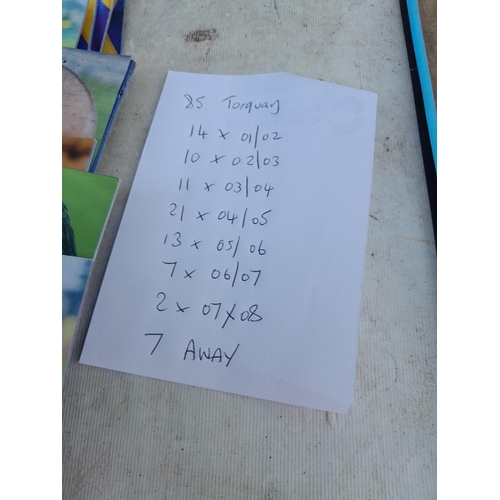 85 Torquay
14 x 01/02
10 x 02/03
11 x 03/04
21 x 04/05
13 x 05/06
7 x 06/07
2 x 07/08
7 AWAY